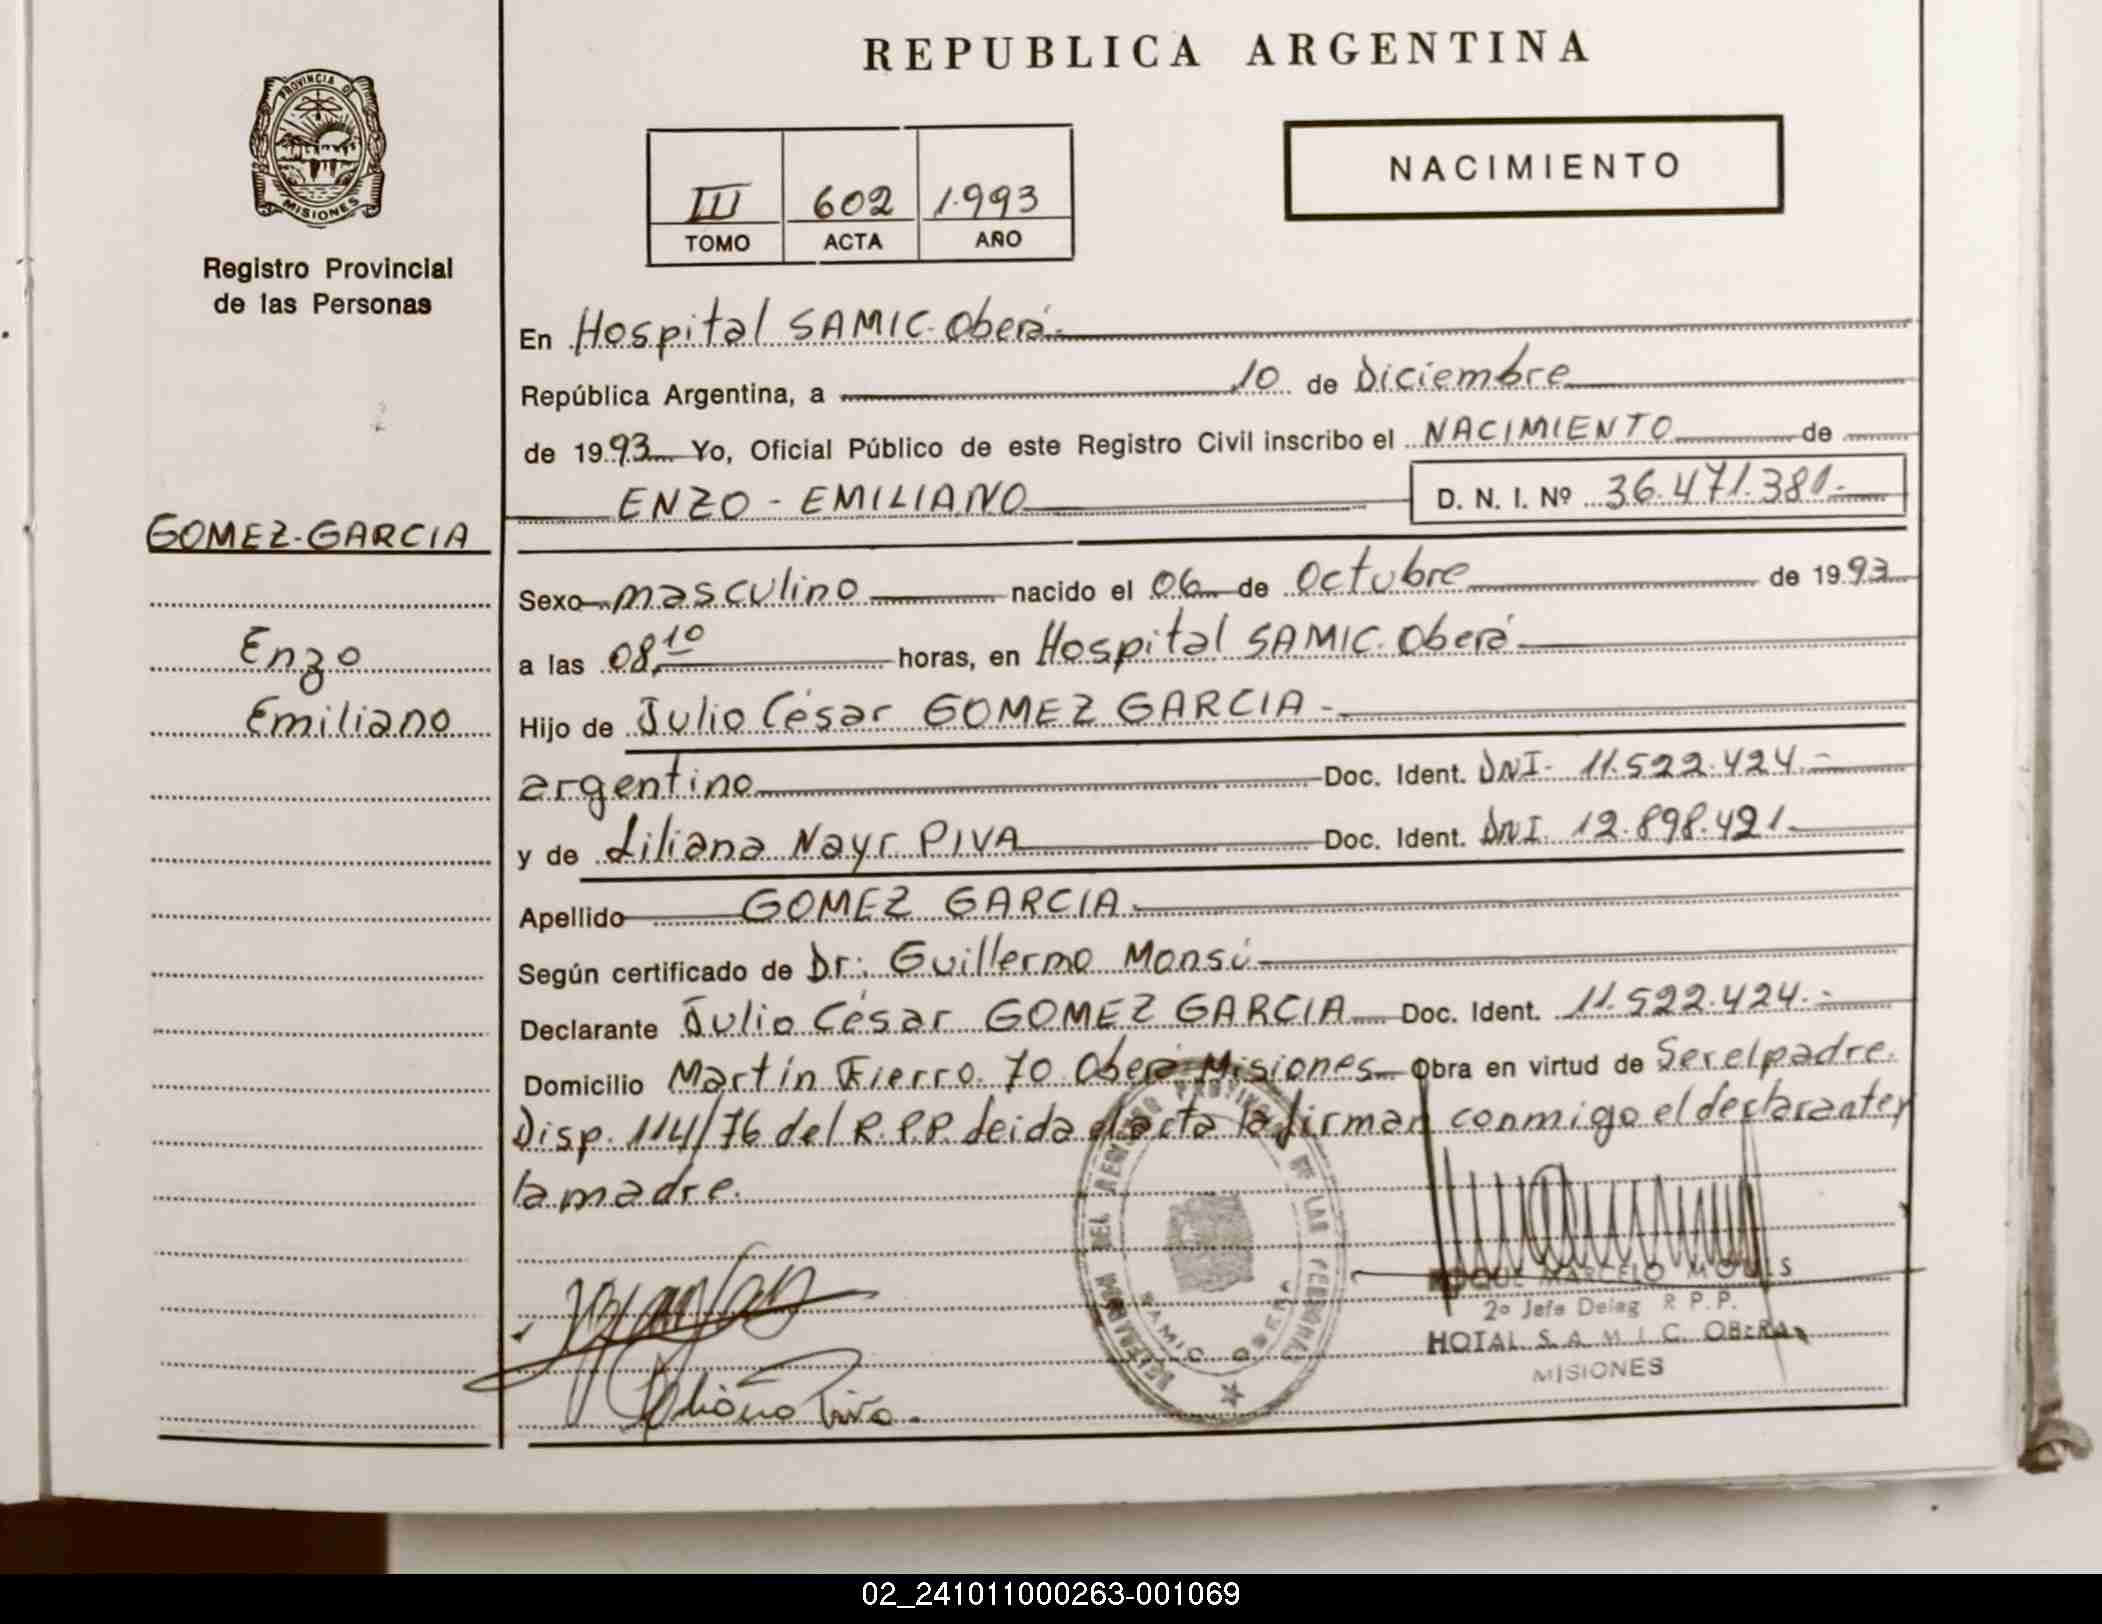 REPUBLICA ARGENTINA
PROVINCIA DE
MISIONES
Registro Provincial
de las Personas
III 602 1.993
TOMO ACTA AÑO
NACIMIENTO
En Hospital SAMIC. Oberá.
República Argentina, a 10 de Diciembre
de 1993 Yo, Oficial Público de este Registro Civil inscribo el NACIMIENTO de
ENZO - EMILIANO D. N. I. Nº 36.471.381.-
GOMEZ-GARCIA
Enzo
Emiliano
Sexo masculino nacido el 06 de Octubre de 1993
a las 08,10 horas, en Hospital SAMIC. Oberá
Hijo de Julio César GOMEZ GARCIA -
argentino Doc. Ident. DNI- 11.522.424.-
y de Liliana Nayr PIVA Doc. Ident. DNI. 12.898.421.-
Apellido GOMEZ GARCIA.
Según certificado de Dr: Guillermo Monsú
Declarante Julio César GOMEZ GARCIA Doc. Ident. 11.522.424.-
Domicilio Martín Fierro. 70 Oberá Misiones Obra en virtud de Ser el padre.
Disp. 114/76 del R.P.P. Leida el acta la firman conmigo el declarante y
la madre.
Liliana Piva.
SAMIC OBERA
ROQUE MARCELO
2º Jefe Deleg R P.P.
HOTAL S. A. M. I. C. OBERA
MISIONES
02_241011000263-001069